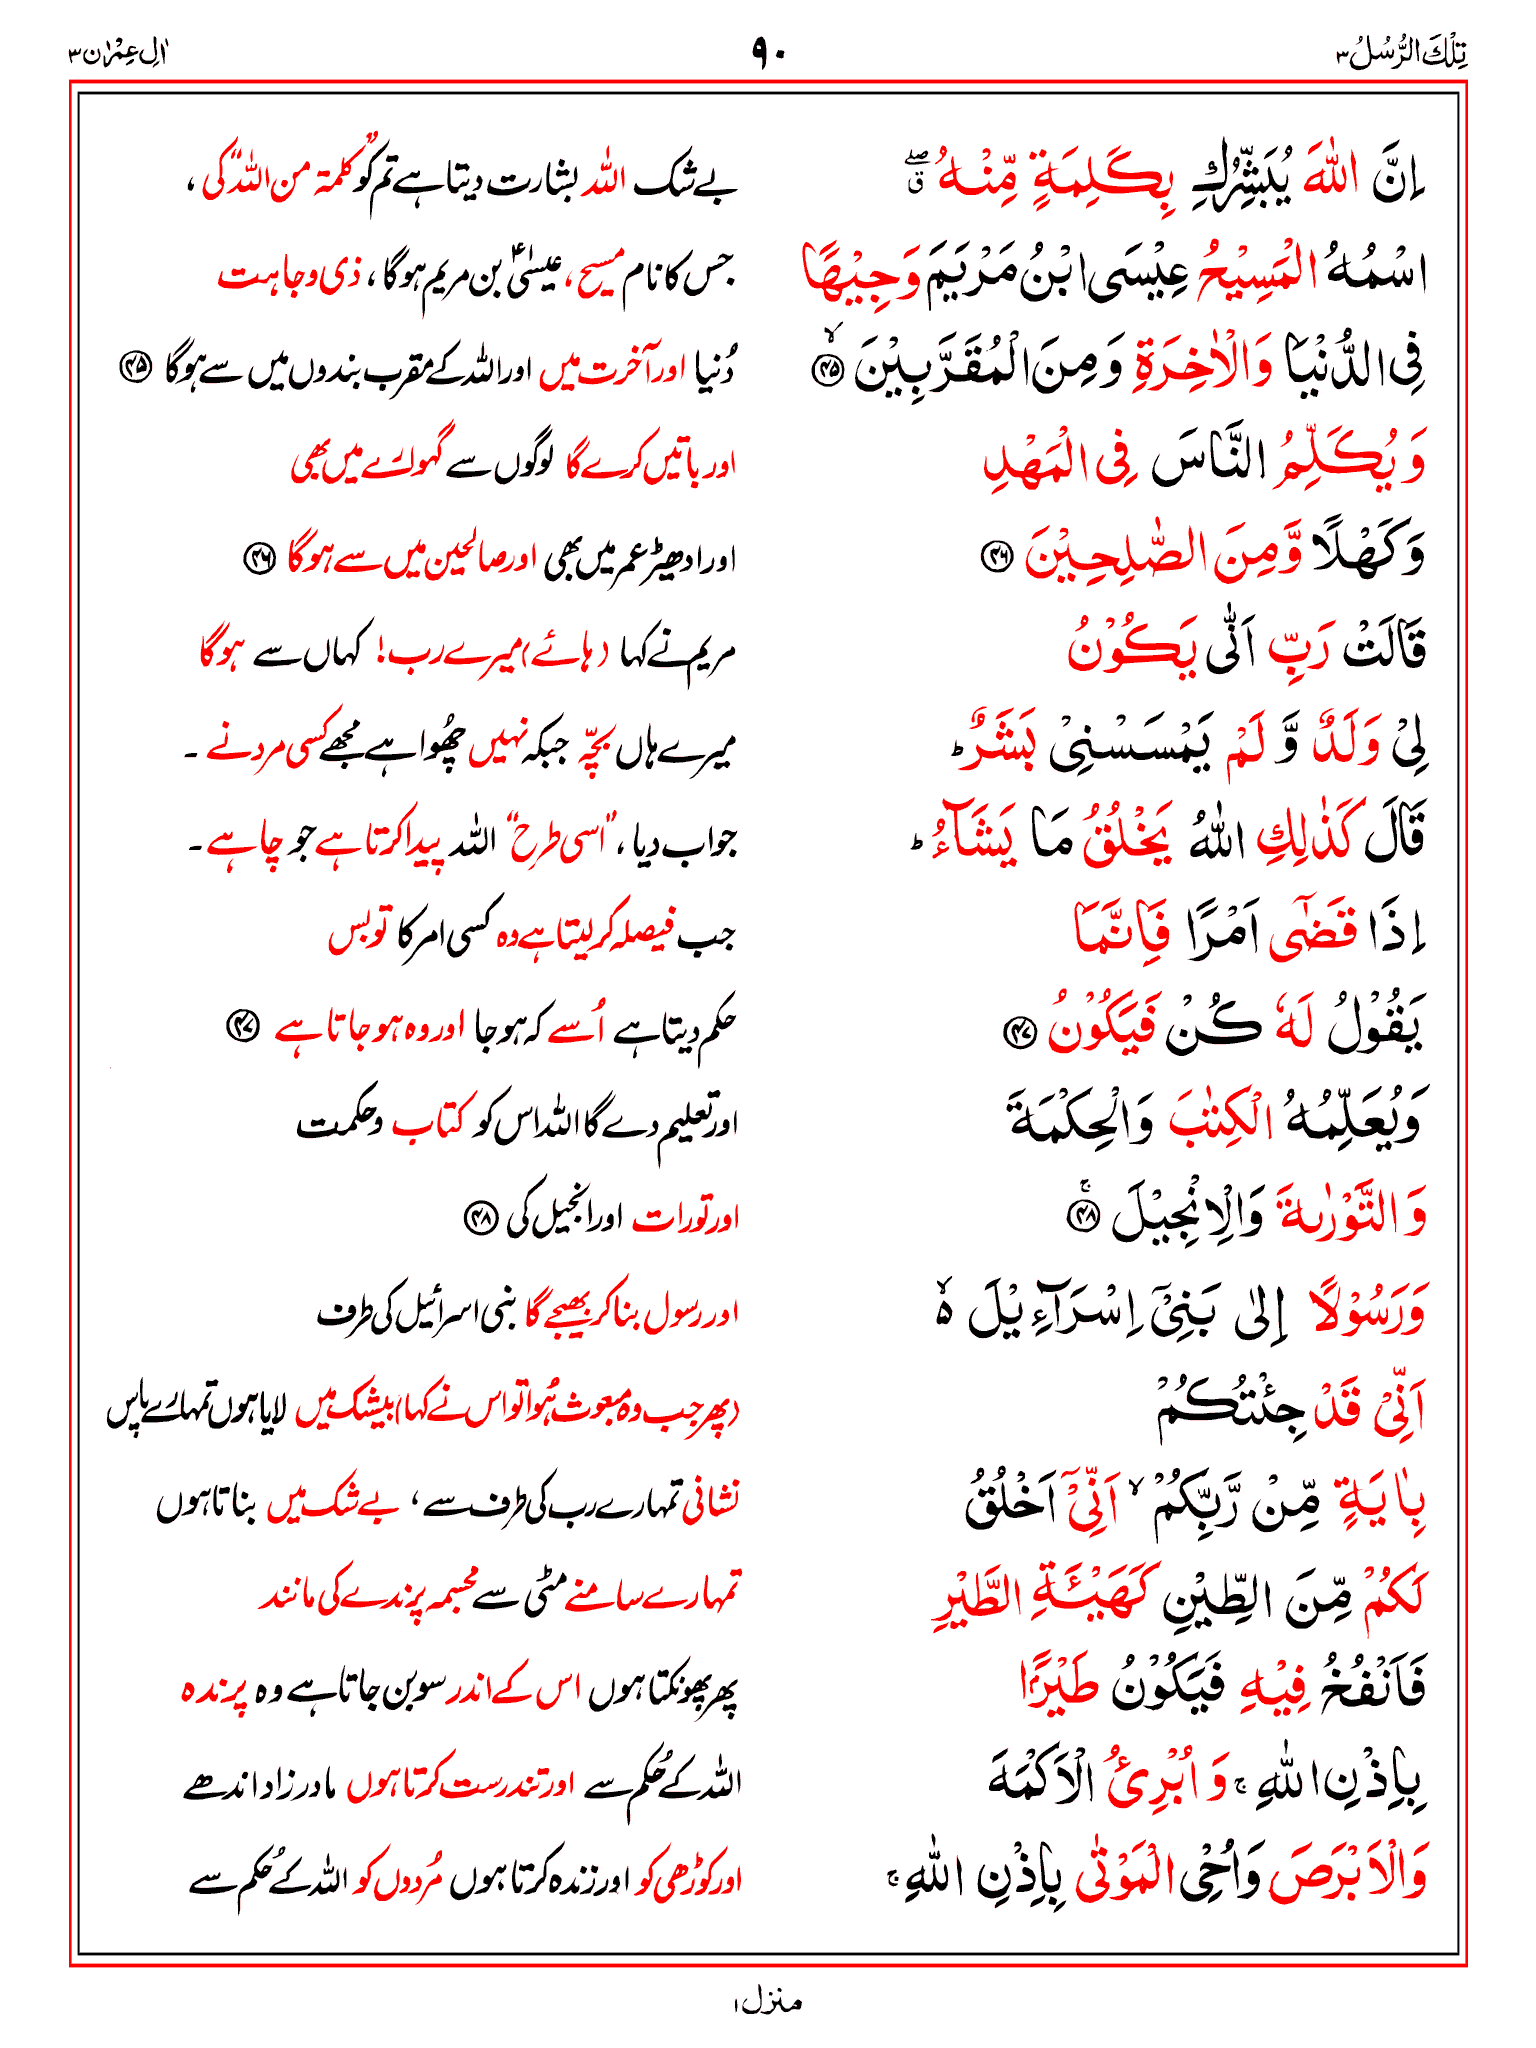 تِلْكَ الرُّسُلُ ۳ ۹۰ اٰلِ عِمْرٰن ۳
اِنَّ اللّٰهَ يُبَشِّرُكِ بِكَلِمَةٍ مِّنْهُ ۖۗ بے شک اللہ بشارت دیتا ہے تم کو ”کلمۃ من اللہ“ کی ،
اسْمُهُ الْمَسِيْحُ عِيْسَى ابْنُ مَرْيَمَ وَجِيْهًا جس کا نام مسیح، عیسیٰؑ بن مریم ہوگا، ذی وجاہت
فِى الدُّنْيَا وَالْاٰخِرَةِ وَمِنَ الْمُقَرَّبِيْنَ ۙ‏﴿۴۵﴾ دُنیا اور آخرت میں اور اللہ کے مقرب بندوں میں سے ہوگا ﴿۴۵﴾
وَيُكَلِّمُ النَّاسَ فِى الْمَهْدِ اور باتیں کرے گا لوگوں سے گہوارے میں بھی
وَكَهْلًا وَّمِنَ الصّٰلِحِيْنَ ﴿۴۶﴾ اور ادھیڑ عمر میں بھی اور صالحین میں سے ہوگا ﴿۴۶﴾
قَالَتْ رَبِّ اَنّٰى يَكُوْنُ مریم نے کہا (ہائے) میرے رب! کہاں سے ہوگا
لِىْ وَلَدٌ وَّ لَمْ يَمْسَسْنِىْ بَشَرٌ ؕ میرے ہاں بچّہ جبکہ نہیں چھُوا ہے مجھے کسی مرد نے ۔
قَالَ كَذٰلِكِ اللّٰهُ يَخْلُقُ مَا يَشَآءُ ؕ جواب دیا، ”اسی طرح“ اللہ پیدا کرتا ہے جو چاہے ۔
اِذَا قَضٰٓى اَمْرًا فَاِنَّمَا جب فیصلہ کرلیتا ہے وہ کسی امر کا تو بس
يَقُوْلُ لَهٗ كُنْ فَيَكُوْنُ ﴿۴۷﴾ حکم دیتا ہے اُسے کہ ہوجا اور وہ ہوجاتا ہے ﴿۴۷﴾
وَيُعَلِّمُهُ الْكِتٰبَ وَالْحِكْمَةَ اور تعلیم دے گا اللہ اس کو کتاب وحکمت
وَالتَّوْرٰىةَ وَالْاِنْجِيْلَ ۚ‏﴿۴۸﴾ اور تورات اور انجیل کی ﴿۴۸﴾
وَرَسُوْلًا اِلٰى بَنِىْٓ اِسْرَآءِيْلَ ۙ۬ اور رسول بنا کر بھیجے گا بنی اسرائیل کی طرف
اَنِّىْ قَدْ جِئْتُكُمْ (پھر جب وہ مبعوث ہُوا تو اس نے کہا) بیشک میں لایا ہوں تمہارے پاس
بِاٰيَةٍ مِّنْ رَّبِّكُمْ ۙ اَنِّىْٓ اَخْلُقُ نشانی تمہارے رب کی طرف سے، بے شک میں بناتا ہوں
لَكُمْ مِّنَ الطِّيْنِ كَهَيْـَٔةِ الطَّيْرِ تمہارے سامنے مٹی سے مجسمہ پرندے کی مانند
فَاَنْفُخُ فِيْهِ فَيَكُوْنُ طَيْرًۢا پھر پھونکتا ہوں اس کے اندر سو بن جاتا ہے وہ پرندہ
بِاِذْنِ اللّٰهِ ۚ وَاُبْرِئُ الْاَكْمَهَ اللہ کے حُکم سے اور تندرست کرتا ہوں مادر زاد اندھے
وَالْاَبْرَصَ وَاُحْىِ الْمَوْتٰى بِاِذْنِ اللّٰهِ ۚ اور کوڑھی کو اور زندہ کرتا ہوں مُردوں کو اللہ کے حُکم سے
منزل ۱